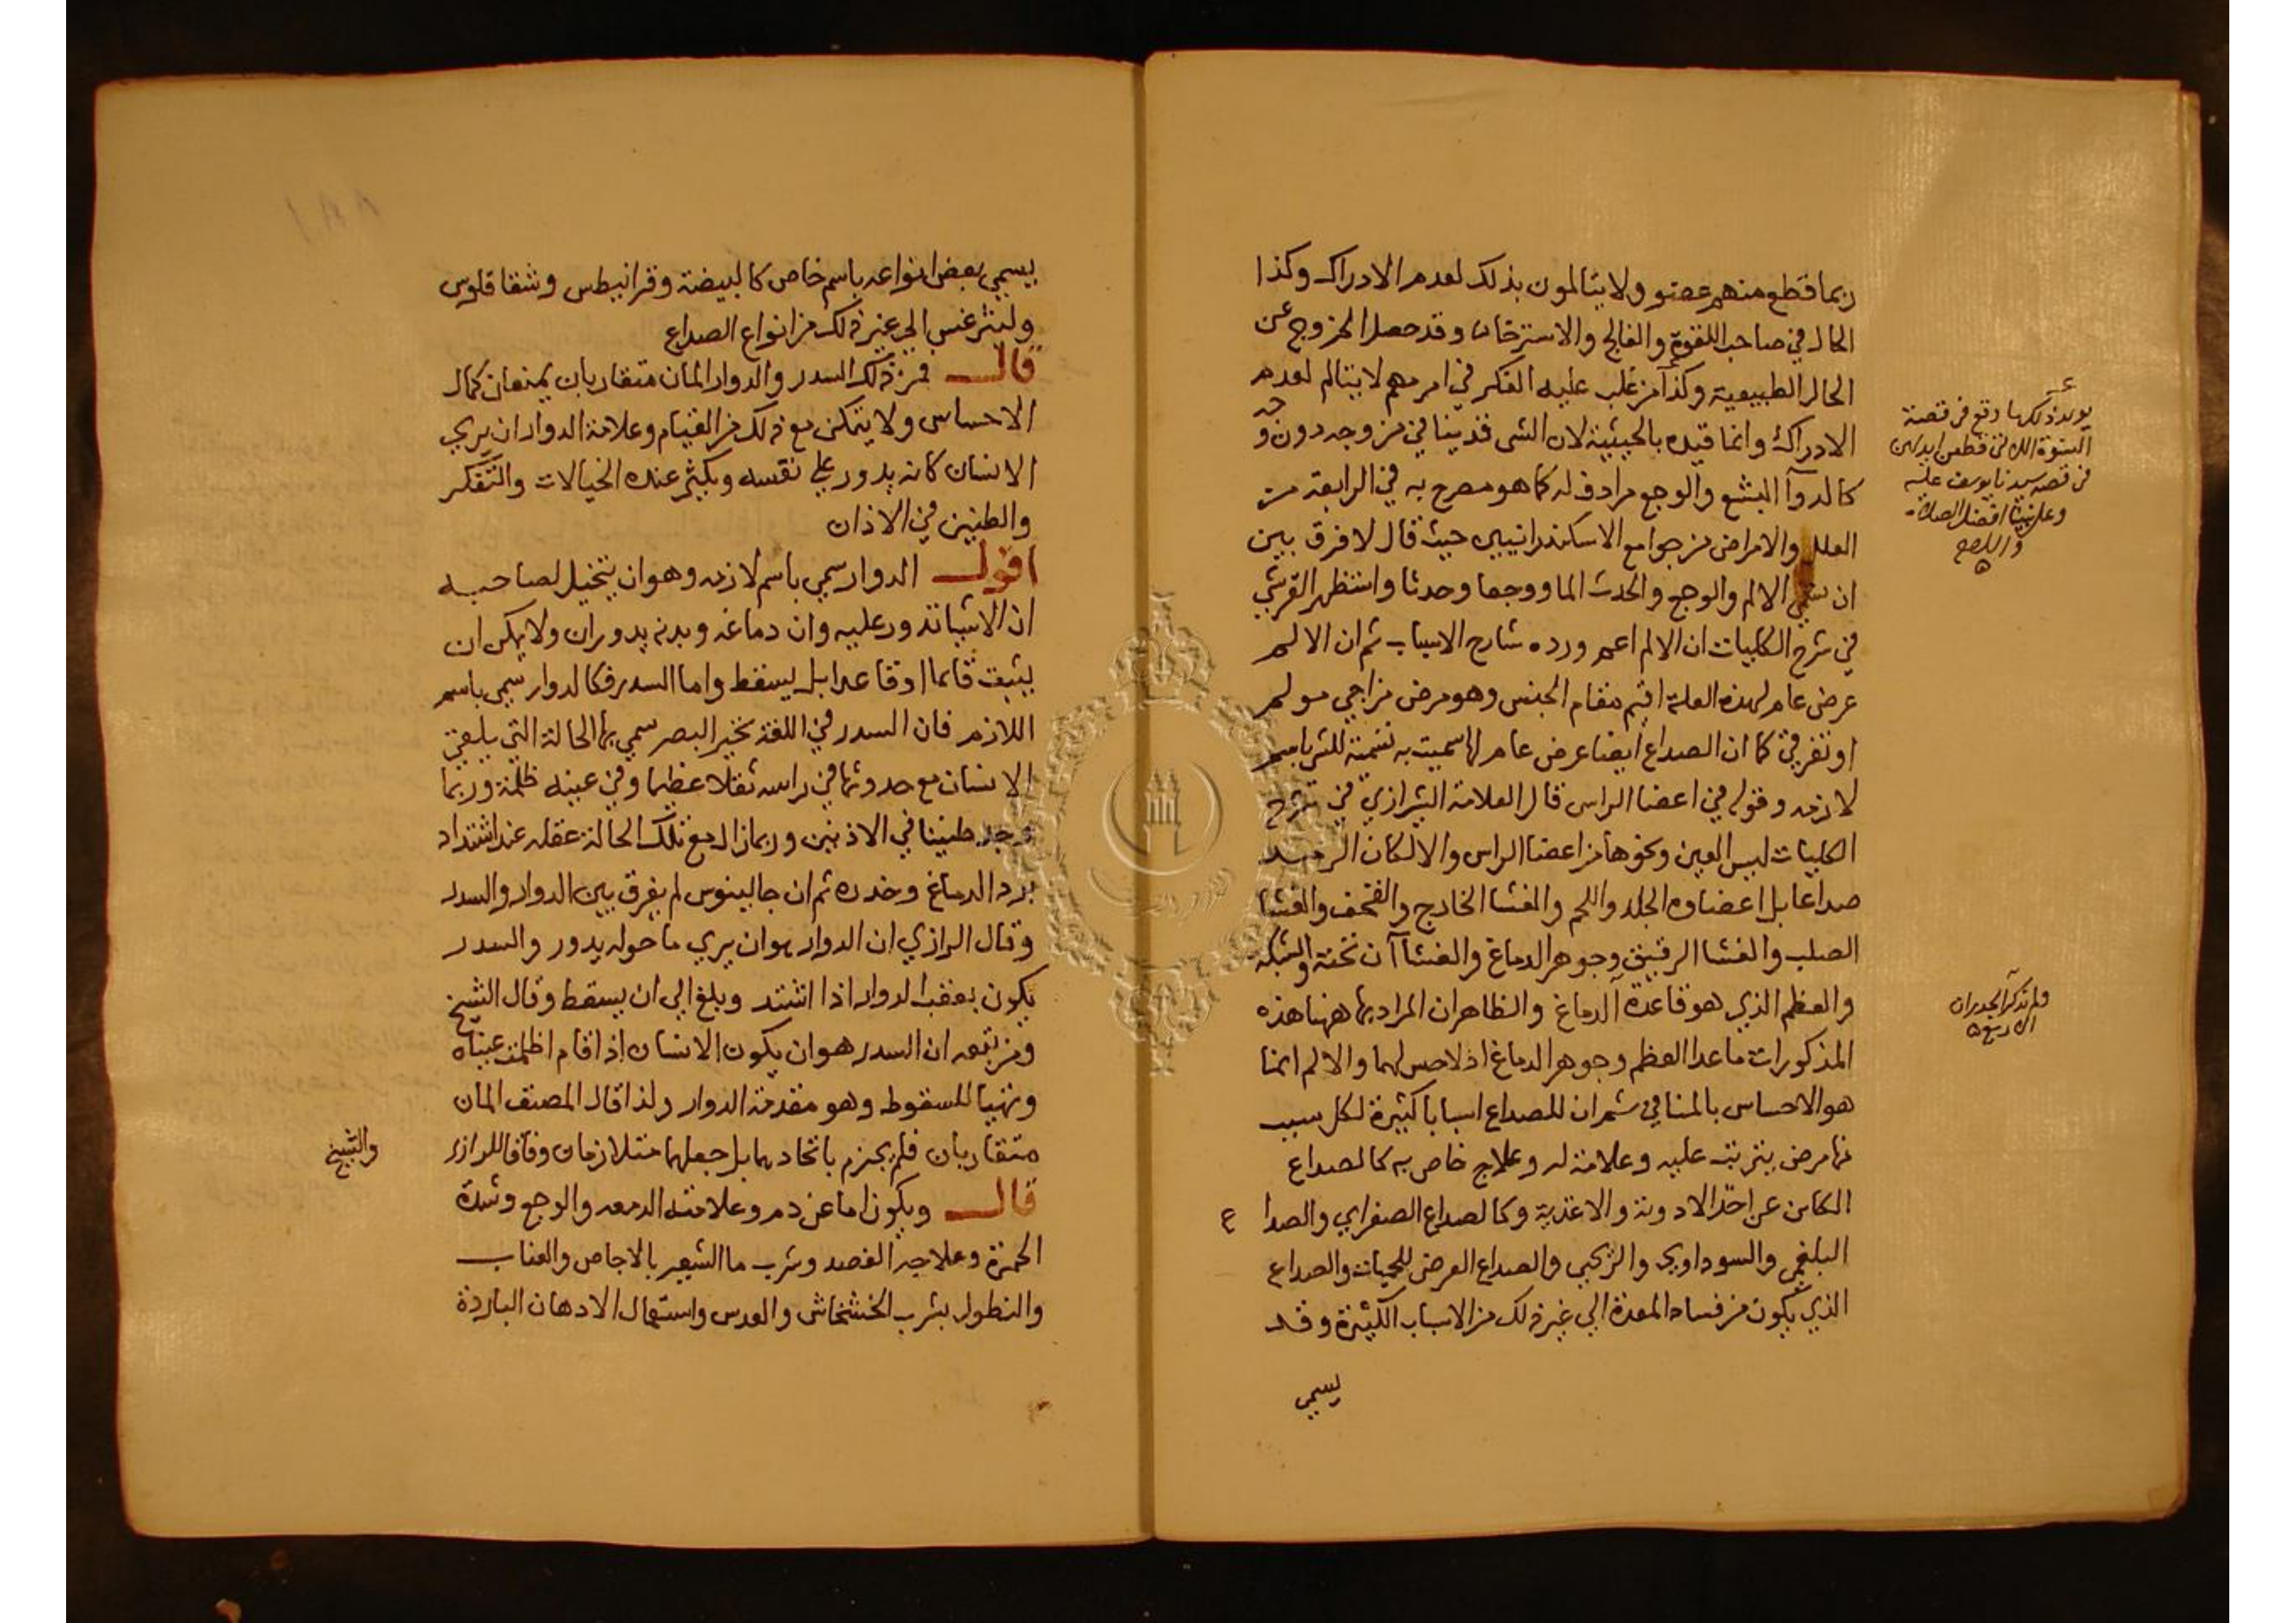 ربما قطع منهم عضو ولا يتالمون بذلك لعدم الادراك وكذا
الحال في صاحب اللقوة والفالج والاسترخاء وقد حصل الخروج عن
الحال الطبيعية وكذا من غلب عليه الفكر في امر مهم لا يتالم لعدم
الادراك وانما قيده بالحيثية لان الشي قد ينافي من وجه دون وجه
كالدوآ البشع والوجع مرادف له كما هو مصرح به في الرابعة من
العلل والامراض من جوامع الاسكندرانيين حيث قال لا فرق بين
ان تسمي الالم والوجع والحدث الما ووجعا وحدثا واستظهر القرشي
في شرح الكليات ان الالم اعم ورده شارح الاسباب ثم ان الالم
عرض عام لهذه العلة اقيم مقام الجنس وهو مرض مزاجي مولم
او تفرقي كما ان الصداع ايضا عرض عام لها سميت به تسمية للشي باسم
لازمه وقوله في اعضا الراس قال العلامة الشيرازي في شرح
الكليات ليس العين ونحوها من اعضا الراس والا لكان الرمد
صداعا بل اعضاوه الجلد واللحم والغشا الخارج والقحف والغشا
الصلب والغشا الرقيق وجوهر الدماغ والغشاآن تحته والشبكة
والعظم الذي هو قاعدة الدماغ والظاهر ان المراد بها ههنا هذه
المذكورات ما عدا العظم وجوهر الدماغ اذ لا حس لهما والالم انما
هو الاحساس بالمنافي ثم ان للصداع اسبابا كثيرة لكل سبب
منها مرض يترتب عليه وعلامة له وعلاج خاص به كالصداع
الكاين عن احد الادوية والاغذية وكالصداع الصفراي والصدا ع
البلغمي والسوداوي والريحي والصداع العرضي للحميات والصداع
الذي يكون من فساد المعدة الي غير ذلك من الاسباب الكثيرة وقد
يسمي
يويد ذلك ما وقع في قصة
النسوة اللاتي قطعن ايديهن
في قصة سيدنا يوسف عليه
وعلى نبينا افضل الصلاة
ولم تذكر الجدران
الاربع
يسمي بعض انواعه باسم خاص كالبيضة وقرانيطس وشقاقلوس
وليثرغس الي غير ذلك من انواع الصداع
قال فمن ذلك السدر والدوار المان متقاربان يمنعان كمال
الاحساس ولا يتمكن مع ذلك من القيام وعلامة الدوار ان يري
الانسان كانه يدور علي نفسه ويكثر عنده الخيالات والتفكر
والطنين في الاذان
اقول الدوار سمي باسم لازمه وهو ان يتخيل لصاحبه
ان الاشيا تدور عليه وان دماغه وبدنه يدوران ولا يمكن ان
يثبت قائما او قاعدا بل يسقط واما السدر فكالدوار سمي باسم
اللازم فان السدر في اللغة تحير البصر سمي بها الحالة التي يلقي
الانسان مع حدوثها في راسه ثقلا عظيما وفي عينه ظلمة وربما
وجد طنينا في الاذنين وربما زال مع تلك الحالة عقله عند اشتداد
برد الدماغ وخدره ثم ان جالينوس لم يفرق بين الدوار والسدر
وقال الرازي ان الدوار هو ان يري ما حوله يدور والسدر
يكون بعقب الدوار اذا اشتد ويلغ الي ان يسقط وقال الشيخ
ومن تبعه ان السدر هو ان يكون الانسان اذا قام اظلمت عيناه
وتهيا للسقوط وهو مقدمة الدوار ولذا قال المصنف المان
متقاربان فلم يجزم باتحادهما بل جعلهما متلازمان وفاقا للرازي
والشيخ
قال ويكون اما عن دم وعلامته الدمعه والوجع وشدة
الحمرة وعلاجه الفصد وشرب ما الشعير بالاجاص والعناب
والنطول بشرب الخشخاش والعدس واستعمال الادهان الباردة